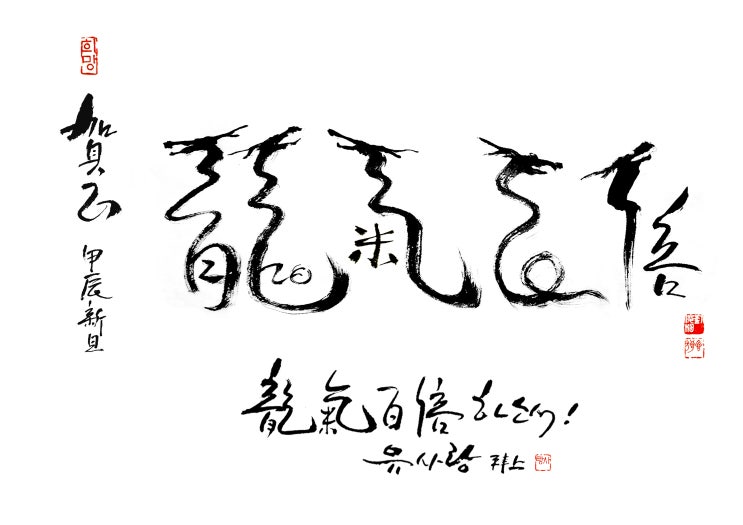 희망
賀正
甲辰 新旦
龍氣百倍
龍氣百倍 하소서!
유사랑 拜上